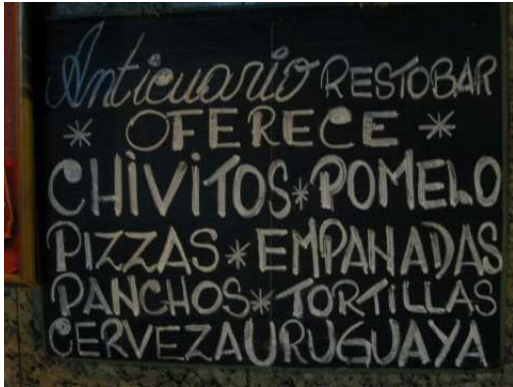 Anticuario RESTOBAR
* OFERECE *
CHIVITOS * POMELO
PIZZAS * EMPANADAS
PANCHOS * TORTILLAS
CERVEZA URUGUAYA